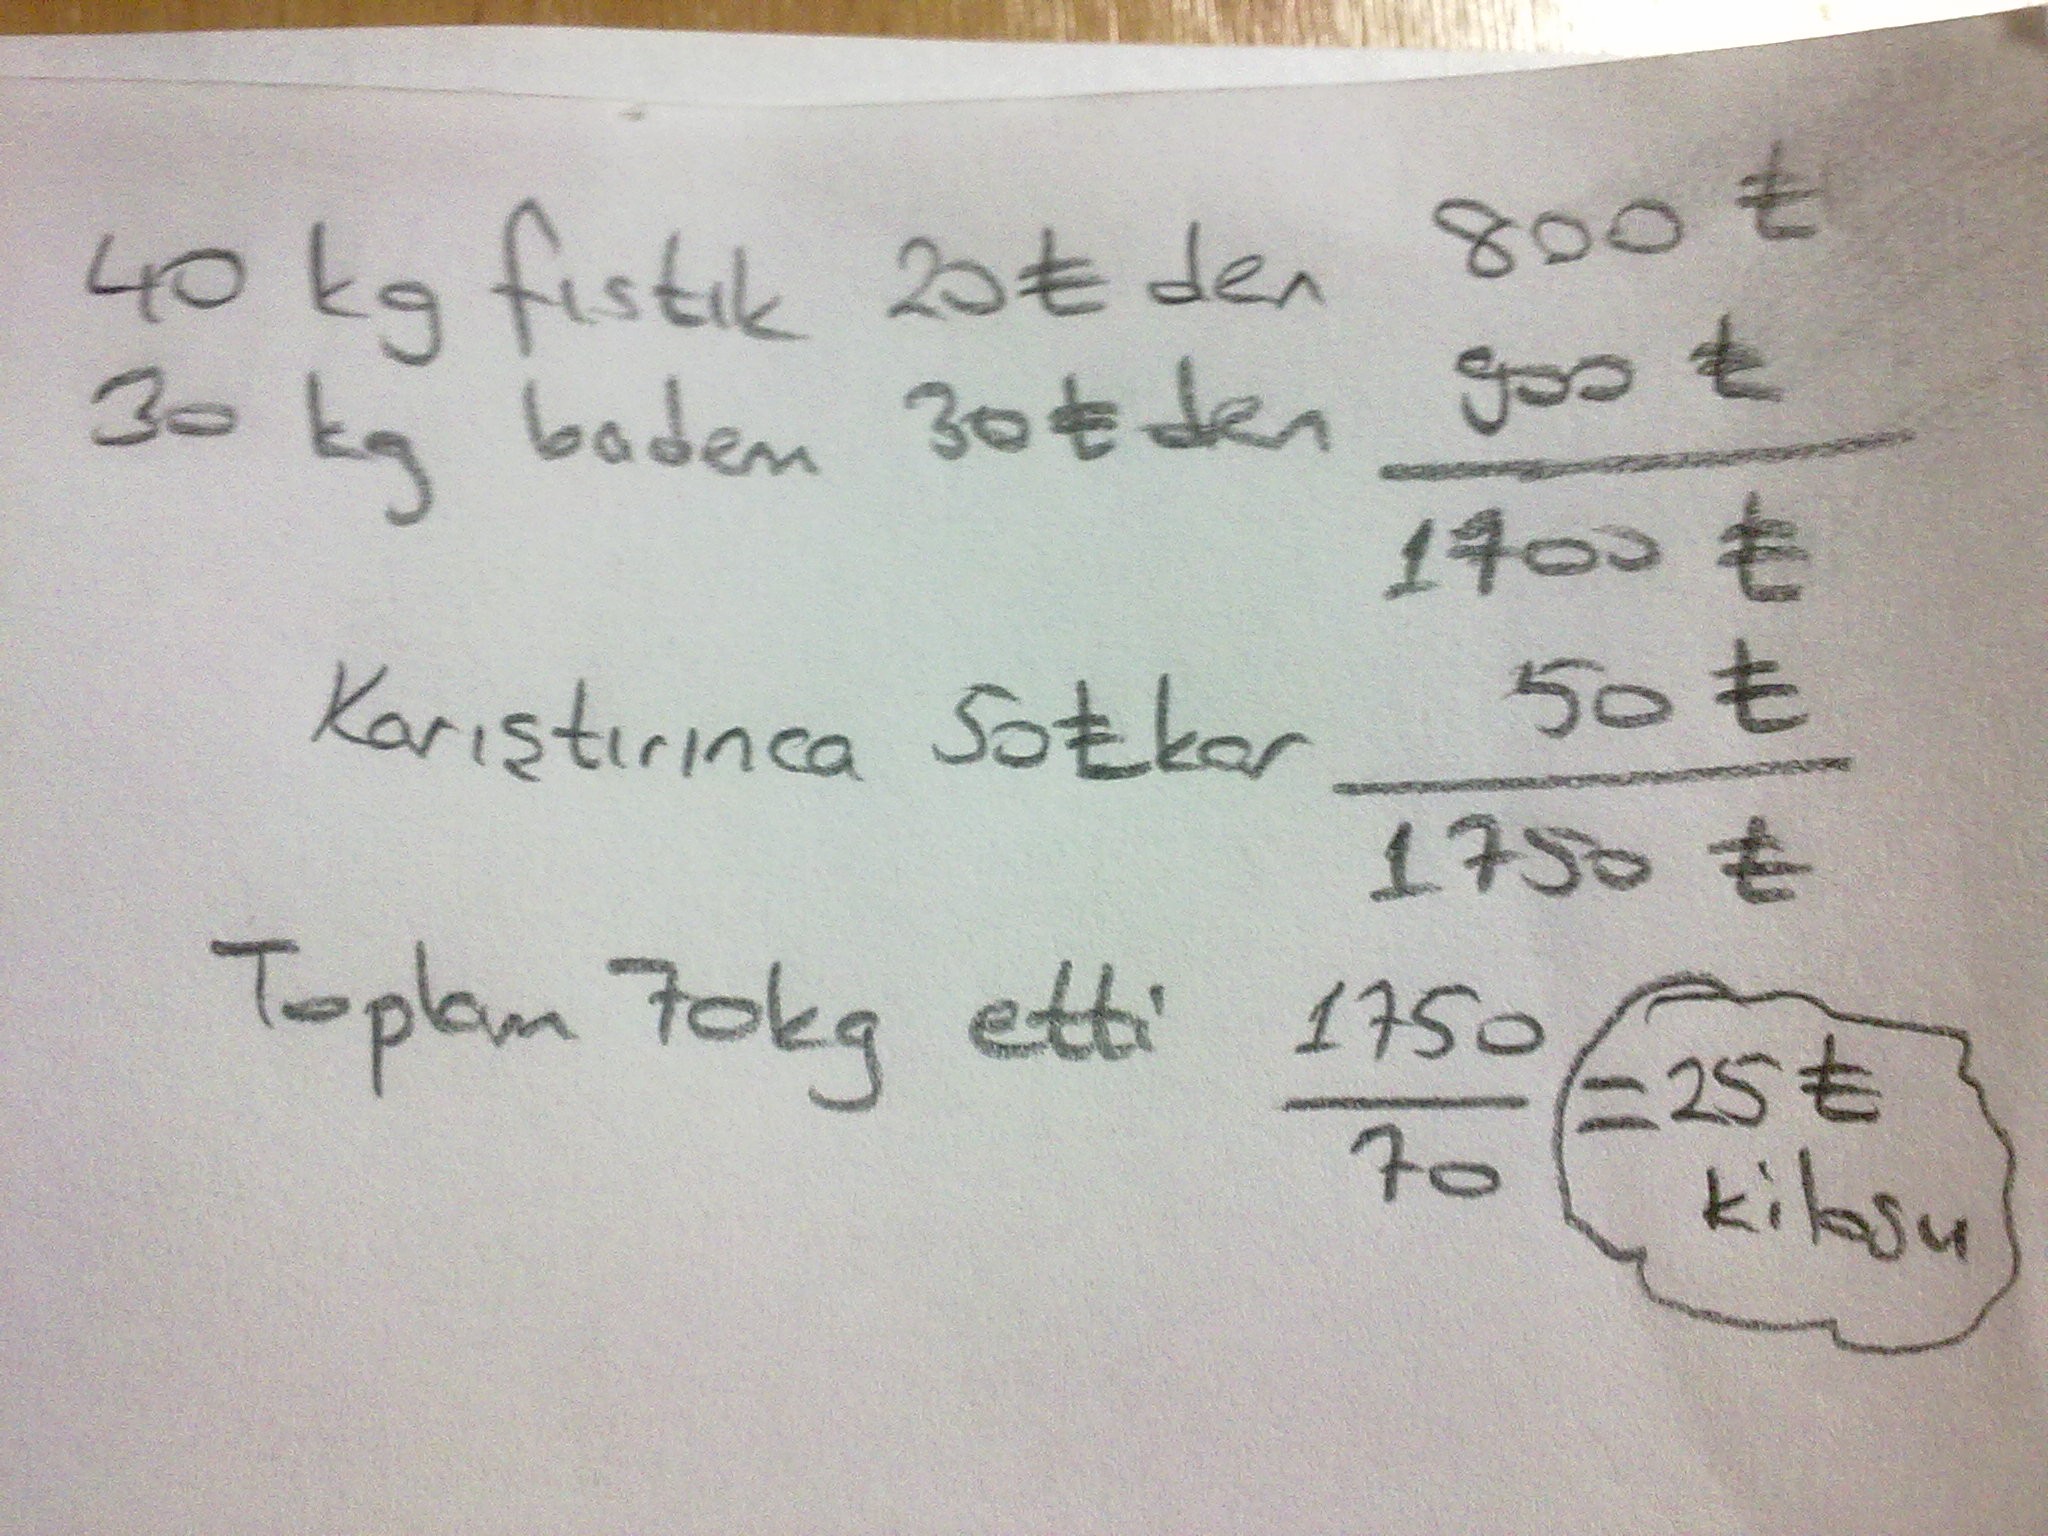 40 kg fıstık 20₺ den 800 ₺
30 kg badem 30₺ den 900 ₺
1700 ₺
Karıştırınca 50₺ kar 50 ₺
1750 ₺
Toplam 70kg etti 1750
70
= 25 ₺
kilosu